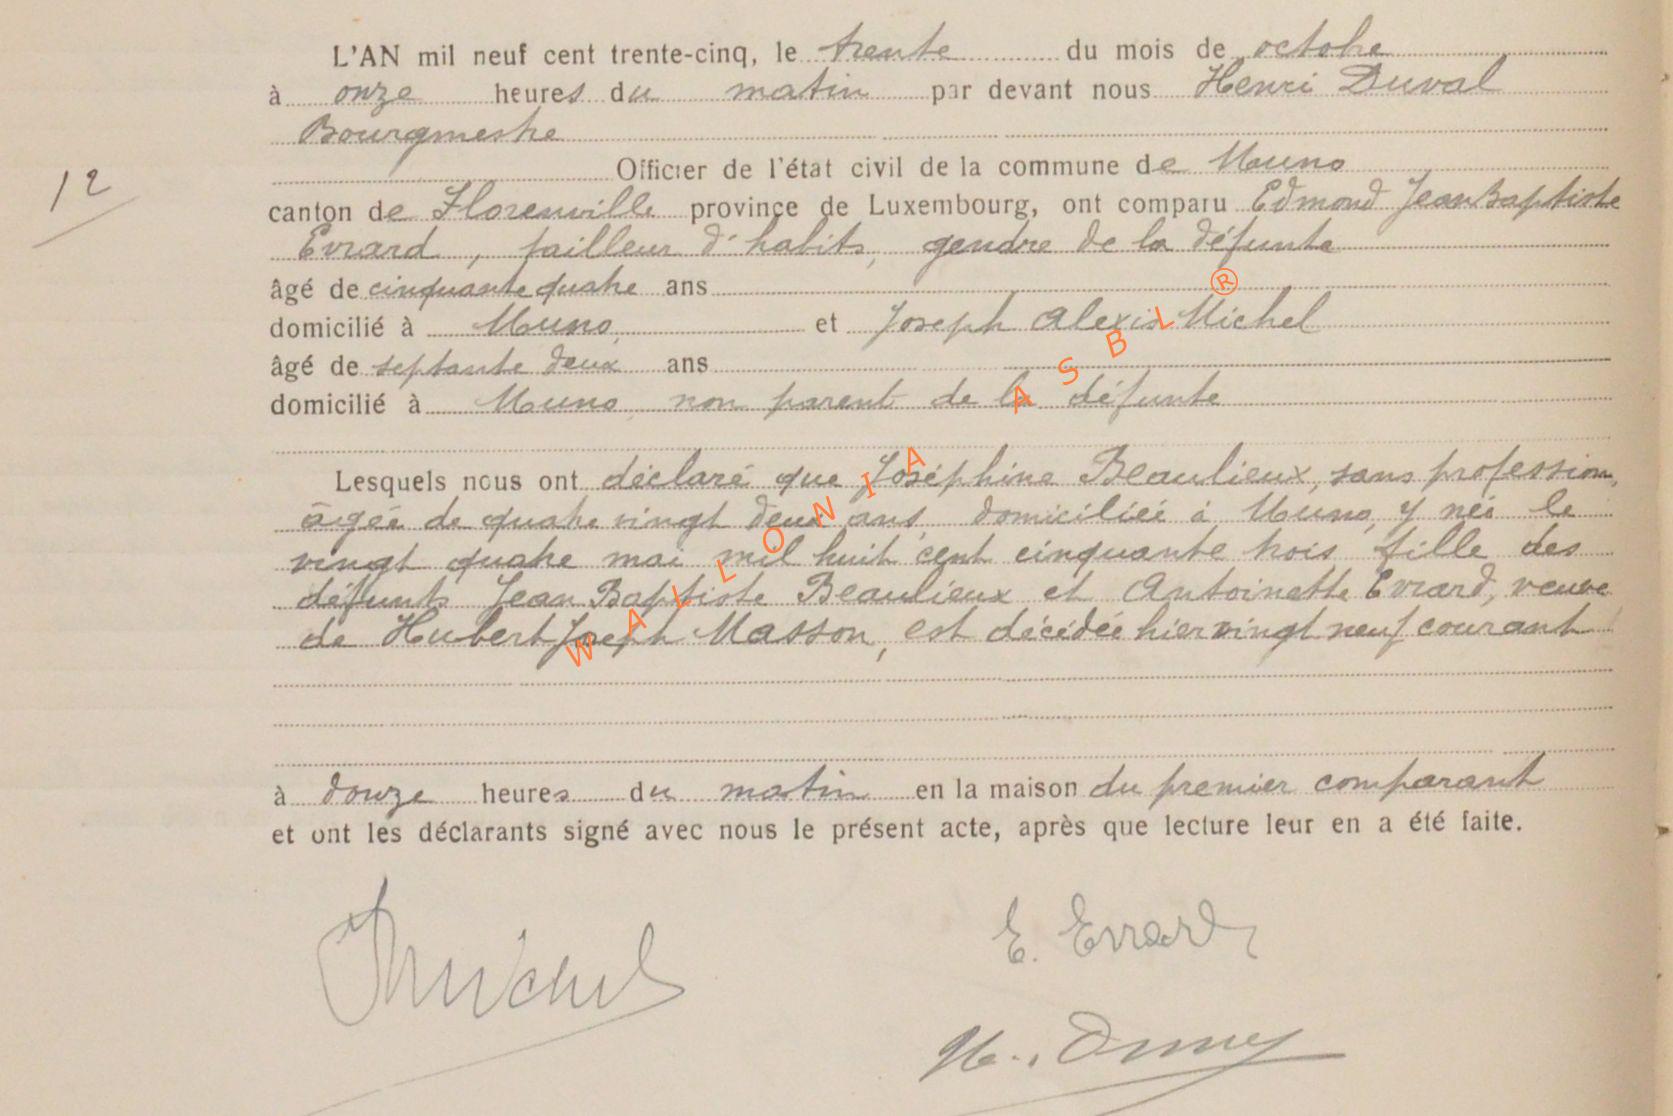 L'AN mil neuf cent trente-cinq, le trente du mois de octobre
à onze heures du matin par devant nous Henri Duval
Bourgmestre
Officier de l'état civil de la commune de Muno
12
canton de Florenville province de Luxembourg, ont comparu Edmond Jean Baptiste
Evrard, tailleur d'habits, gendre de la défunte
âgé de cinquante quatre ans
domicilié à Muno, et Joseph Alexis Michel
âgé de septante deux ans
domicilié à Muno, non parent de la défunte
Lesquels nous ont déclaré que Joséphine Beaulieux, sans profession,
âgée de quatre vingt deux ans, domiciliée à Muno, y née le
vingt quatre mai mil huit cent cinquante trois, fille des
défunts Jean Baptiste Beaulieux et Antoinette Evrard, veuve
de Hubert Joseph Masson, est décédée hier vingt neuf courant
à douze heures du matin en la maison du premier comparant
et ont les déclarants signé avec nous le présent acte, après que lecture leur en a été faite.
JMichel
E. Evrard
WALLONIA ASBL ®